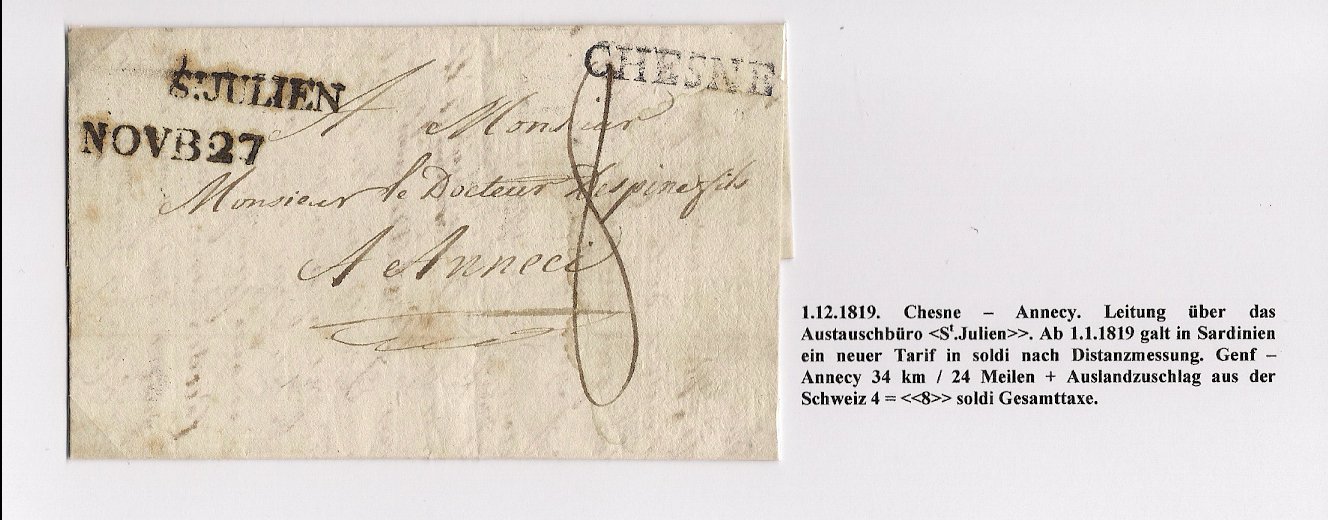 Sᵗ.JULIEN
NOVB27
CHESNE
8
A Monsieur
Monsieur le Docteur Despine fils
A Anneci
1.12.1819. Chesne – Annecy. Leitung über das
Austauschbüro <Sᵗ.Julien>>. Ab 1.1.1819 galt in Sardinien
ein neuer Tarif in soldi nach Distanzmessung. Genf –
Annecy 34 km / 24 Meilen + Auslandzuschlag aus der
Schweiz 4 = <<8>> soldi Gesamttaxe.